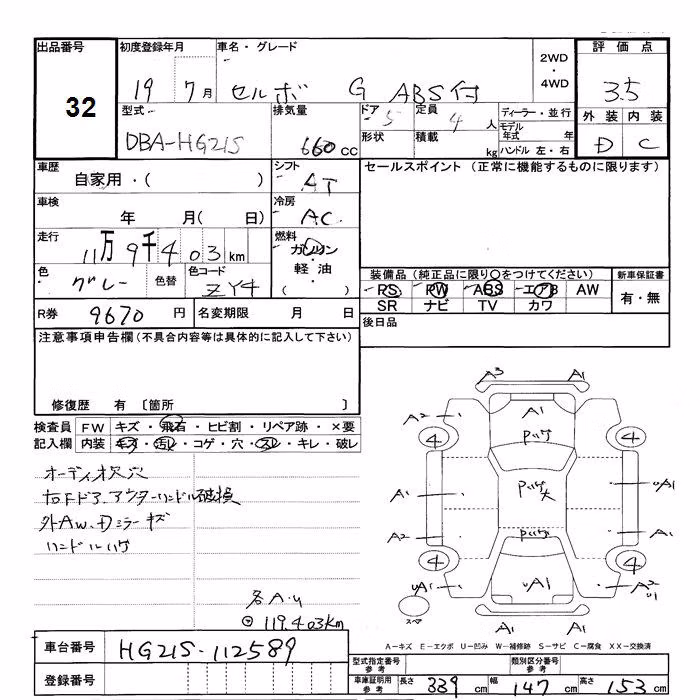 出品番号 初度登録年月 車名・グレード 2WD 評価点
32 19 7月 セルボ G ABS付 ・ 4WD 3.5
型式 排気量 ドア 定員 ディーラー・並行 外装 内装
DBA-HG21S 660cc 5 4人 モデル年式 年 D C
形状 積載 kg ハンドル 左・右
車歴 シフト セールスポイント (正常に機能するものに限ります)
自家用・( ) AT
車検 冷房
年 月( 日) AC
走行 燃料
11万9千403km ガソリン
軽油
( )
色 色替 色コード
グレー ZY4
装備品 (純正品に限り○をつけてください) 新車保証書
PS PW ABS エアB AW 有・無
SR ナビ TV カワ
R券 9670円 名変期限 月 日 後日品
注意事項申告欄(不具合内容等は具体的に記入して下さい)
修復歴 有 〔箇所 〕
検査員 FW キズ・飛石・ヒビ割・リペア跡・×要
記入欄 内装 キズ・汚レ・コゲ・穴・スレ・キレ・破レ
オーディオ欠穴
右Fドアアウターハンドル破損
外AW、Dミラーキズ
ハンドルハゲ
各A.U
119.403km
A3 A1
A2 A1 A1
4 ハゲ 4
A1 ハゲ大 uA1
A2 ハゲ A1
4 4
uA1 uA1 A2 u1
スペア A1 A1
A-キズ E-エクボ U-凹み W-補修跡 S-サビ C-腐食 XX-交換済
車台番号 HG21S-112589
登録番号
型式指定番号 参考 類別区分番号 参考
車庫証明用 参考 長さ 339cm 幅 147cm 高さ 153cm